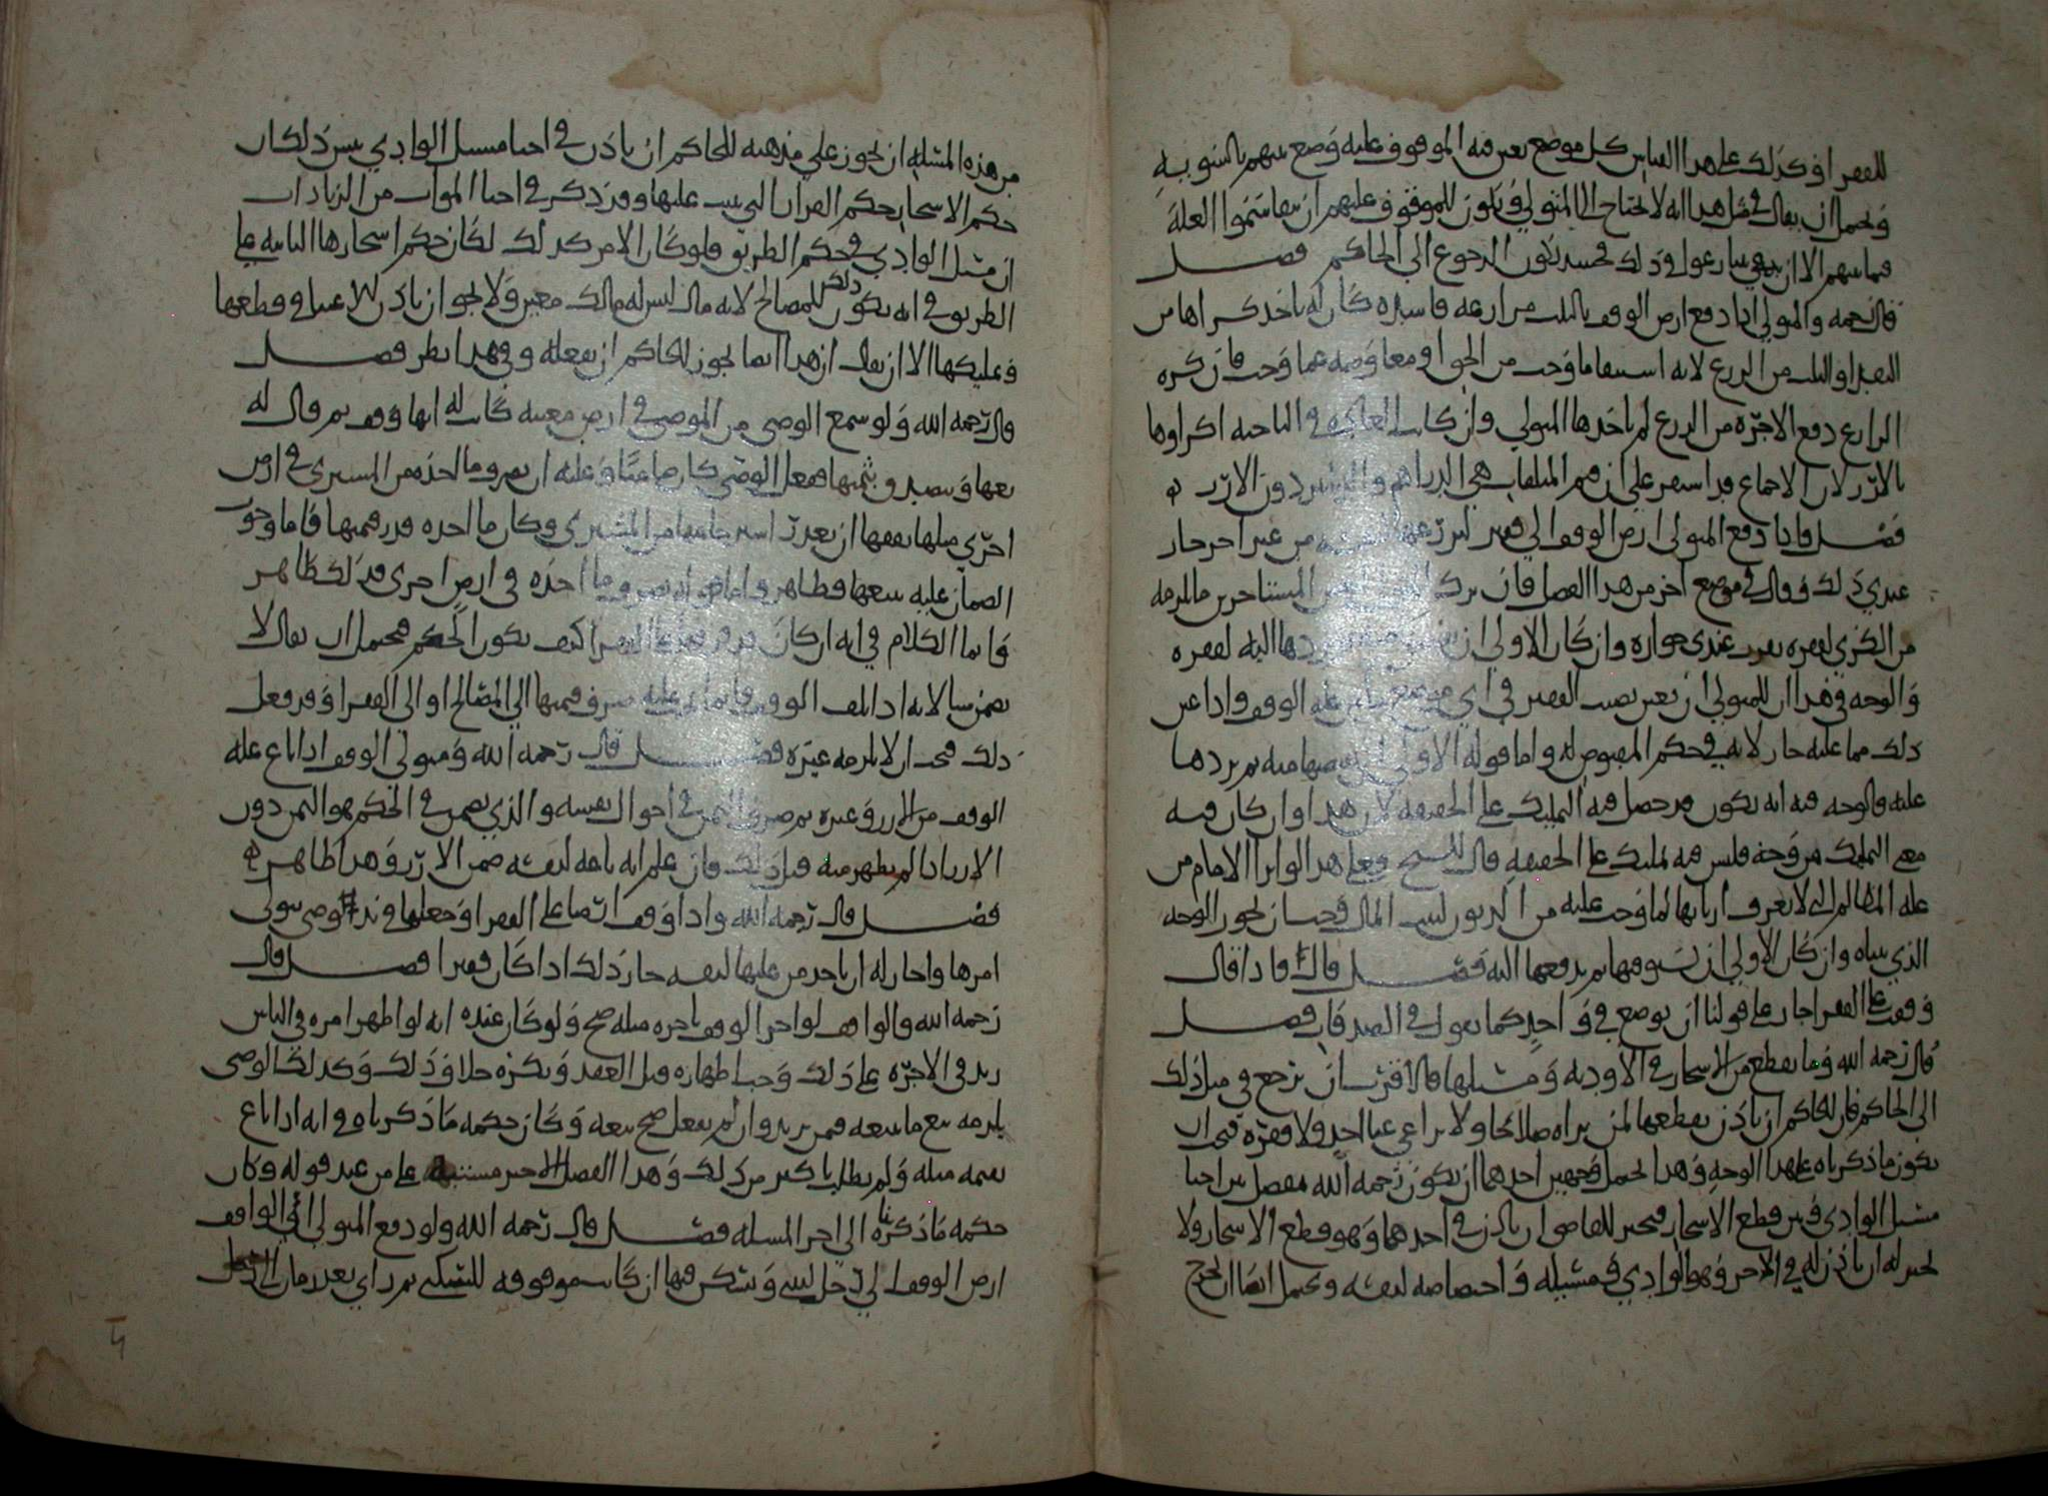 للفقرا وكذلك على هذا القياس كل موضع تعين فيه الموقوف عليه وضع بينهم بالسويه
ويحتمل ان يقال في مثل هذا انه لا يحتاج الى المتولي ويكون للموقوف عليهم ان يتقاسموا الغلة
فيما بينهم الا ان يتنازعوا في ذلك فحينئذ يكون الرجوع الى الحاكم فصل
قال رحمه والمتولي اذا دفع ارض الوقف بالثلث مزارعه فاسده كان له ياخذ كراها من
النقد او الثلث من الزرع لانه استيفا ما وجب من الحق او معاوضه عما وجب فان كره
الزارع دفع الاجره من الزرع لم ياخذها المتولي وان كانت العاده في الناحيه اكراوها
بالارز لان الاجماع قد استقر على ان قيم المتلفات هي الدراهم والدنانير دون الارز
فصل فاذا دفع المتولي ارض الوقف الى فقير ليزرعها من غير اجر جاز
عندي ذلك وقال في موضع اخر من هذا الفصل فان ترك المستاجرين ما لزمه
من الكرى لفقره يقرب عندي جوازه وان كان الاولى ان يردها اليه لفقره
والوجه في هذا ان للمتولي ان يعين نصيب الفقير في اي موضع من غله الوقف واذا عين
ذلك مما عليه جاز لانه في حكم المقبوض له واما قوله الاولى ان يقبضها منه ثم يردها
عليه فالوجه فيه انه يكون قد حصل فيه التمليك على الحقيقه لان هذا وان كان فيه
معنى التمليك من وجه فليس فيه تمليك على الحقيقه قال الشيخ فعلى هذا لو ابرا الامام من
عليه المظالم التي لا تعرف اربابها لما وجب عليه من الديون لبيت المال فيجب ان يجوز الوجه
الذي بيناه وان كان الاولى ان يستوفيها ثم يدفعها اليه فصل قال فاذا قال
وقفت على الفقرا جاز على قولنا ان يوضع في واحد كما نقول في الصدقات فصل
قال رحمه الله وما يقطع من الاشجار في الاوديه ومسيلها فالاقرب ان يرجع في مثل ذلك
الى الحاكم فان للحاكم ان ياذن بقطعها لمن يراه صلاحا ولا يراعي غنا احد ولا فقره فيجب ان
يكون ما ذكرناه على هذا الوجه وهذا يحتمل وجهين احدهما ان يكون رحمه الله يفصل بين احيا
مسيل الوادي وبين قطع الاشجار فيجيز للقاضي ان ياذن في احدهما وهو قطع الاشجار ولا
يجيز له ان ياذن له في الاخر وهو الوادي في مسيله واختصاصه لنفسه ويحتمل ايضا ان يخرج
من هذه المسئله ان يجوز على مذهبه للحاكم ان ياذن في احيا مسيل الوادي بين ذلك ان
حكم الاشجار حكم القرار التي نبت عليها وقد ذكر في احيا الموات من الزيادات
ان مسيل الوادي في حكم الطريق فلو كان الامر كذلك لكان حكم اشجارها النابته على
الطريق في انه يكون ذلك للمصالح لانه مال ليس له مالك معين ولا يجوز ان ياذن للاغنيا في قطعها
وتمليكها الا ان يقال ان هذا انما يجوز للحاكم ان يفعله وفي هذا نظر فصل
قال رحمه الله ولو سمع الوصي من الموصي في ارض معينه كانت له انها وقف ثم قال له
بعها وتصدق بثمنها ففعل الوصي كان ضامنا وعليه ان يصرف ما اخذه من المشتري في ارض
اخرى مثلها يقفها ان تعذر استرجاعها من المشتري وكان ما اخذه قدر قيمتها فاما وجوب
الضمان عليه ببيعها فظاهر واما صرف ما اخذه في ارض اخرى فذلك ظاهر
وانما الكلام في انه ان كان قد فرقها على الفقرا كيف يكون الحكم فيحتمل ان يقال لا
يضمن شيا لانه اذا اتلف الوقف فانما عليه صرف قيمتها الى المصالح او الى الفقرا وقد فعل
ذلك فيجب ان لا يلزمه غيره فصل قال رحمه الله ومتولي الوقف اذا باع غله
الوقف من الارز وغيره ثم صرف الثمن في احوال نفسه والذي يضمن في الحكم هو الثمن دون
الارز اذا لم يظهر منه قبل ذلك فان علم انه باعه لنفسه ضمن الارز وهذا ظاهر
فصل قال رحمه الله واذا وقف ارضا على الفقرا وجعلها في يد وصي يتولى
امرها واجاز له ان ياخذ من غلتها لنفسه جاز ذلك اذا كان فقيرا فصل قال
رحمه الله والواقف لو اجر الوقف باجره مثله صح ولو كان عنده انه لو اظهر امره في الناس
زيد في الاجره على ذلك وجب اظهاره قبل العقد ويكره خلاف ذلك وكذلك الوصي
يلزمه بيع ما يبيعه فيمن يزيد وان لم يفعل صح بيعه وكان حكمه ما ذكرناه في انه اذا باع
بقيمه مثله ولم يطلب باكثر من ذلك وهذا الفصل الاخير مستثبته على من عند قوله وكان
حكمه ما ذكرنا الى اخر المسئله فصل قال رحمه الله ولو دفع المتولي او الواقف
ارض الوقف الى رجل ليبني ويسكن فيها ان كانت موقوفه للسكنى ثم راى بعد زمان